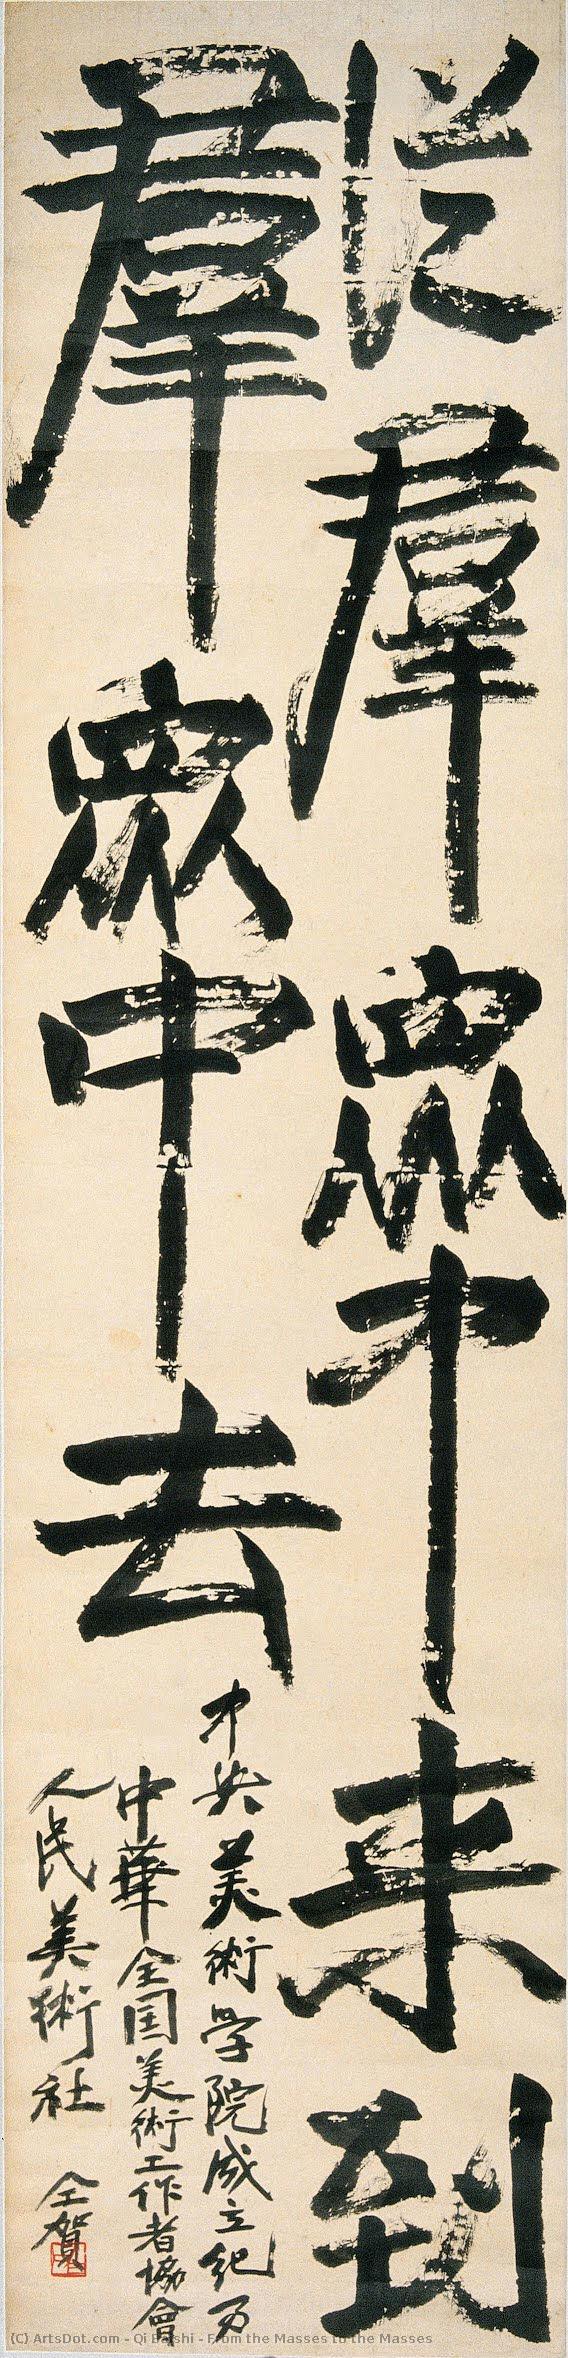 從羣眾中来到
羣眾中去
中央美術学院成立纪
中華全国美術工作者協會
人民美術社 仝賀
(C) ArtsDot.com - Qi Baishi - From the Masses to the Masses